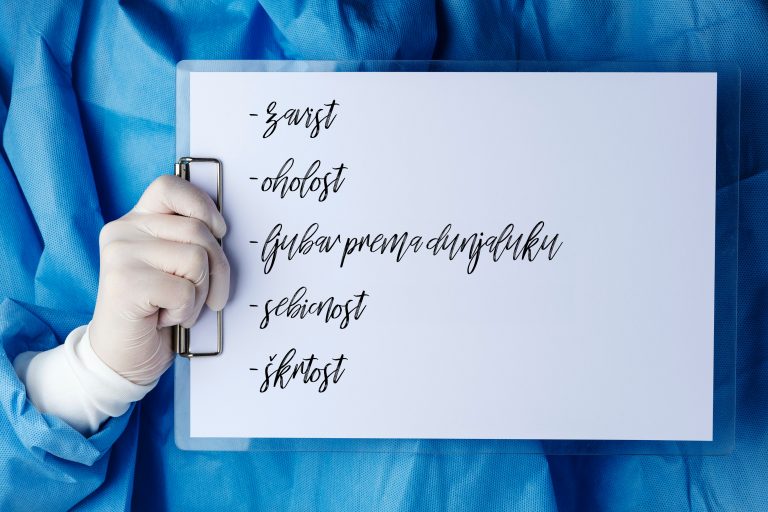 - zavist
- oholost
- ljubav prema dunjaluku
- sebicnost
- škrtost